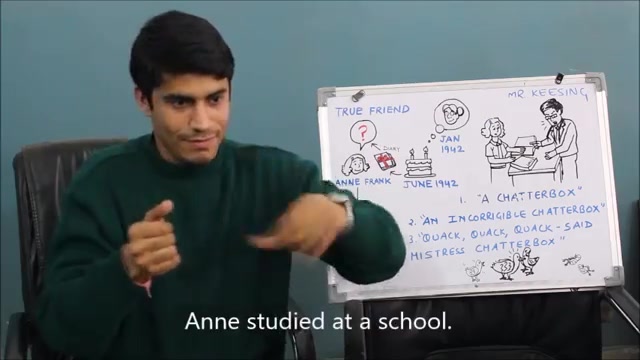 TRUE FRIEND
MR. KEESING
?
JAN
1942
DIARY
ANNE FRANK
JUNE 1942
1. "A CHATTERBOX"
2. "AN INCORRIGIBLE CHATTERBOX"
3. "QUACK, QUACK, QUACK - SAID
MISTRESS CHATTERBOX"
Anne studied at a school.